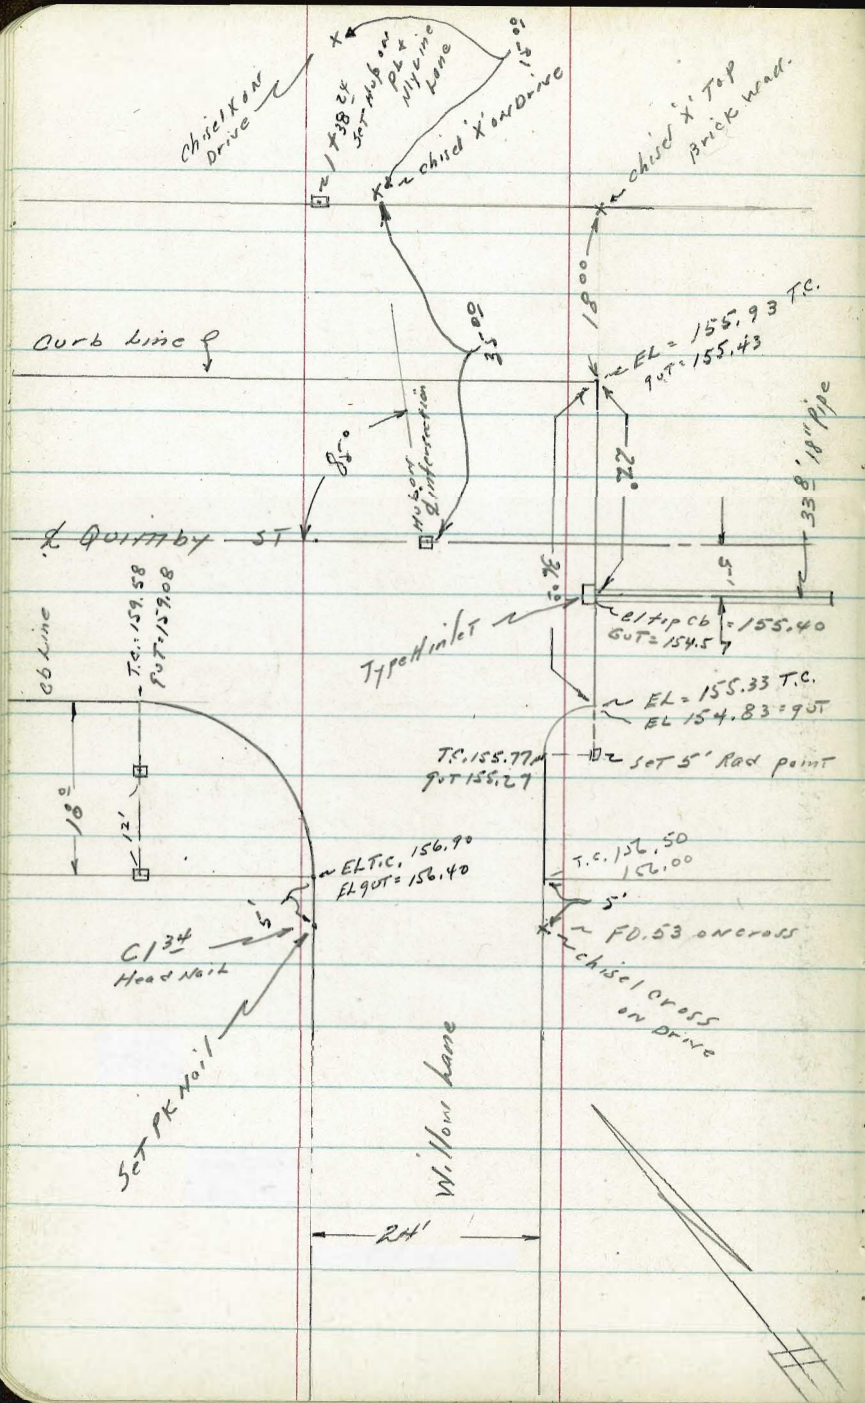 Chisel X on
Drive
1+38 24
Set Hub on
PL &
Nly Line
Lane
chisel 'X' on Drive
chisel 'X' Top
Brick Wall.
18 00
EL = 155.93 T.C.
gut = 155.43
Curb Line
35.00
85.0
Hub on
℄ intersection
22.0
33 8' 18" Pipe
℄ Quimby ST
5'
36.00
Type H inlet
el top cb = 155.40
GUT = 154.57
cb Line
T.C. = 159.58
gut = 159.08
EL = 155.33 T.C.
EL 154.83 = gut
T.C. 155.77
gut 155.27
Set 5' Rad point
18 0
12'
EL T.C. 156.90
EL gut = 156.40
T.C. 156.50
156.00
5'
5'
C1 34
Head Nail
FD.53 on cross
chisel cross
on Drive
Set PK Nail
Willow Lane
24'